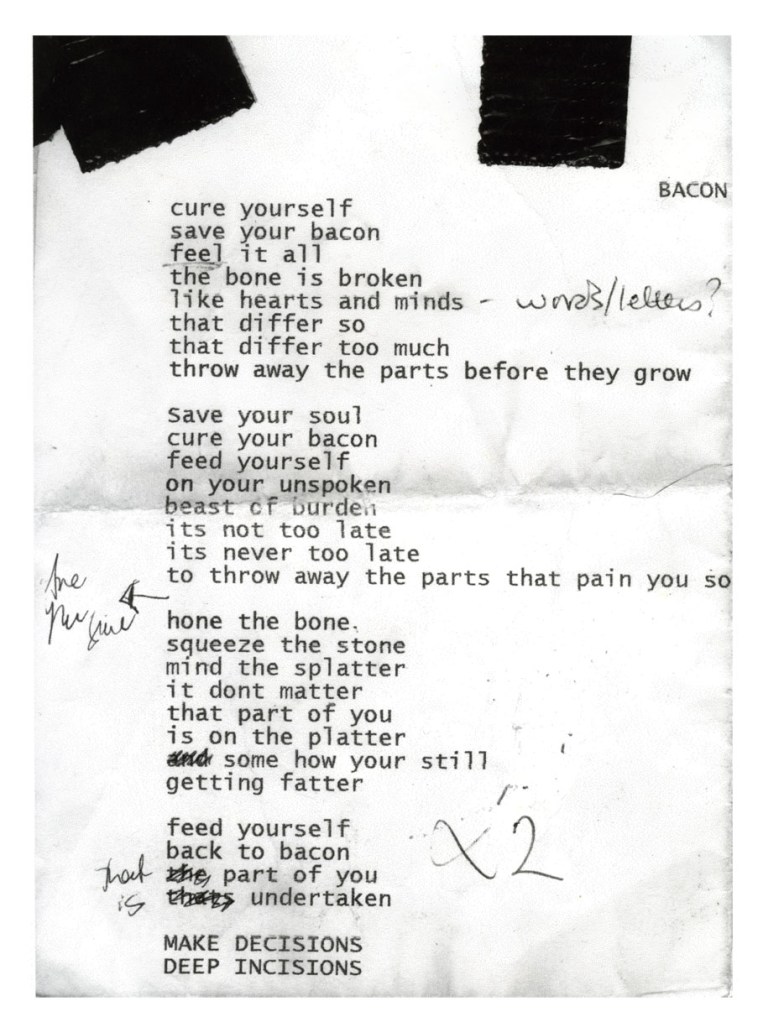 BACON
cure yourself
save your bacon
feel it all
the bone is broken
like hearts and minds - words/letters?
that differ so
that differ too much
throw away the parts before they grow
Save your soul
cure your bacon
feed yourself
on your unspoken
beast of burden
its not too late
its never too late
to throw away the parts that pain you so
hone the bone.
squeeze the stone
mind the splatter
it dont matter
that part of you
is on the platter
and some how your still
getting fatter
feed yourself
back to bacon
X2
that the part of you
is thats undertaken
MAKE DECISIONS
DEEP INCISIONS